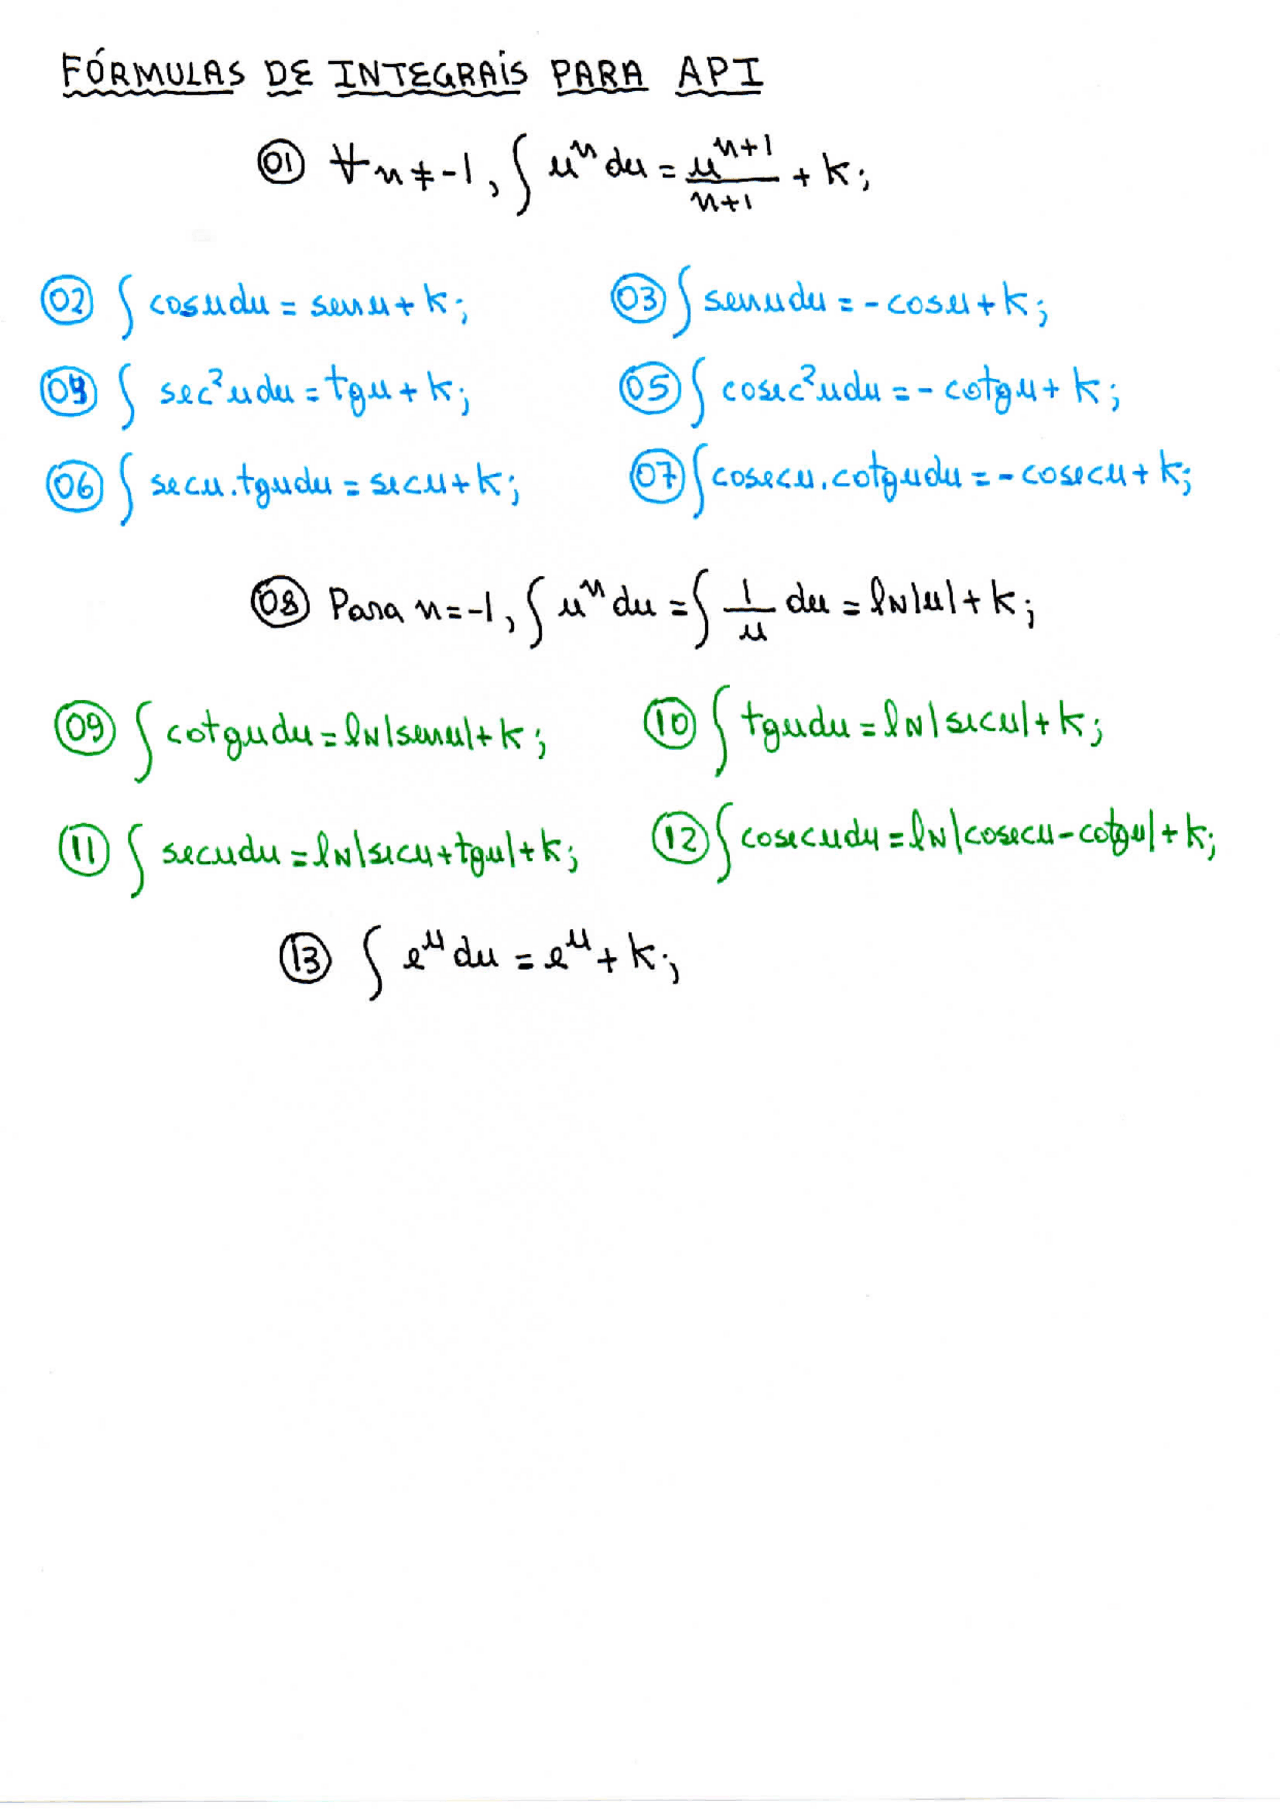 FÓRMULAS DE INTEGRAIS PARA API
01 ∀n≠-1, ∫ uⁿ du = uⁿ⁺¹/n+1 + k;
02 ∫ cosudu = senu + k; 03 ∫ senudu = -cosu + k;
04 ∫ sec²udu = tgu + k; 05 ∫ cosec²udu = -cotgu + k;
06 ∫ secu.tgudu = secu + k; 07 ∫ cosecu.cotgudu = -cosecu + k;
08 Para n=-1, ∫ uⁿ du = ∫ 1/u du = ln|u| + k;
09 ∫ cotgudu = ln|senu| + k; 10 ∫ tgudu = ln|secu| + k;
11 ∫ secudu = ln|secu+tgu| + k; 12 ∫ cosecudu = ln|cosecu-cotgu| + k;
13 ∫ eᵘ du = eᵘ + k;